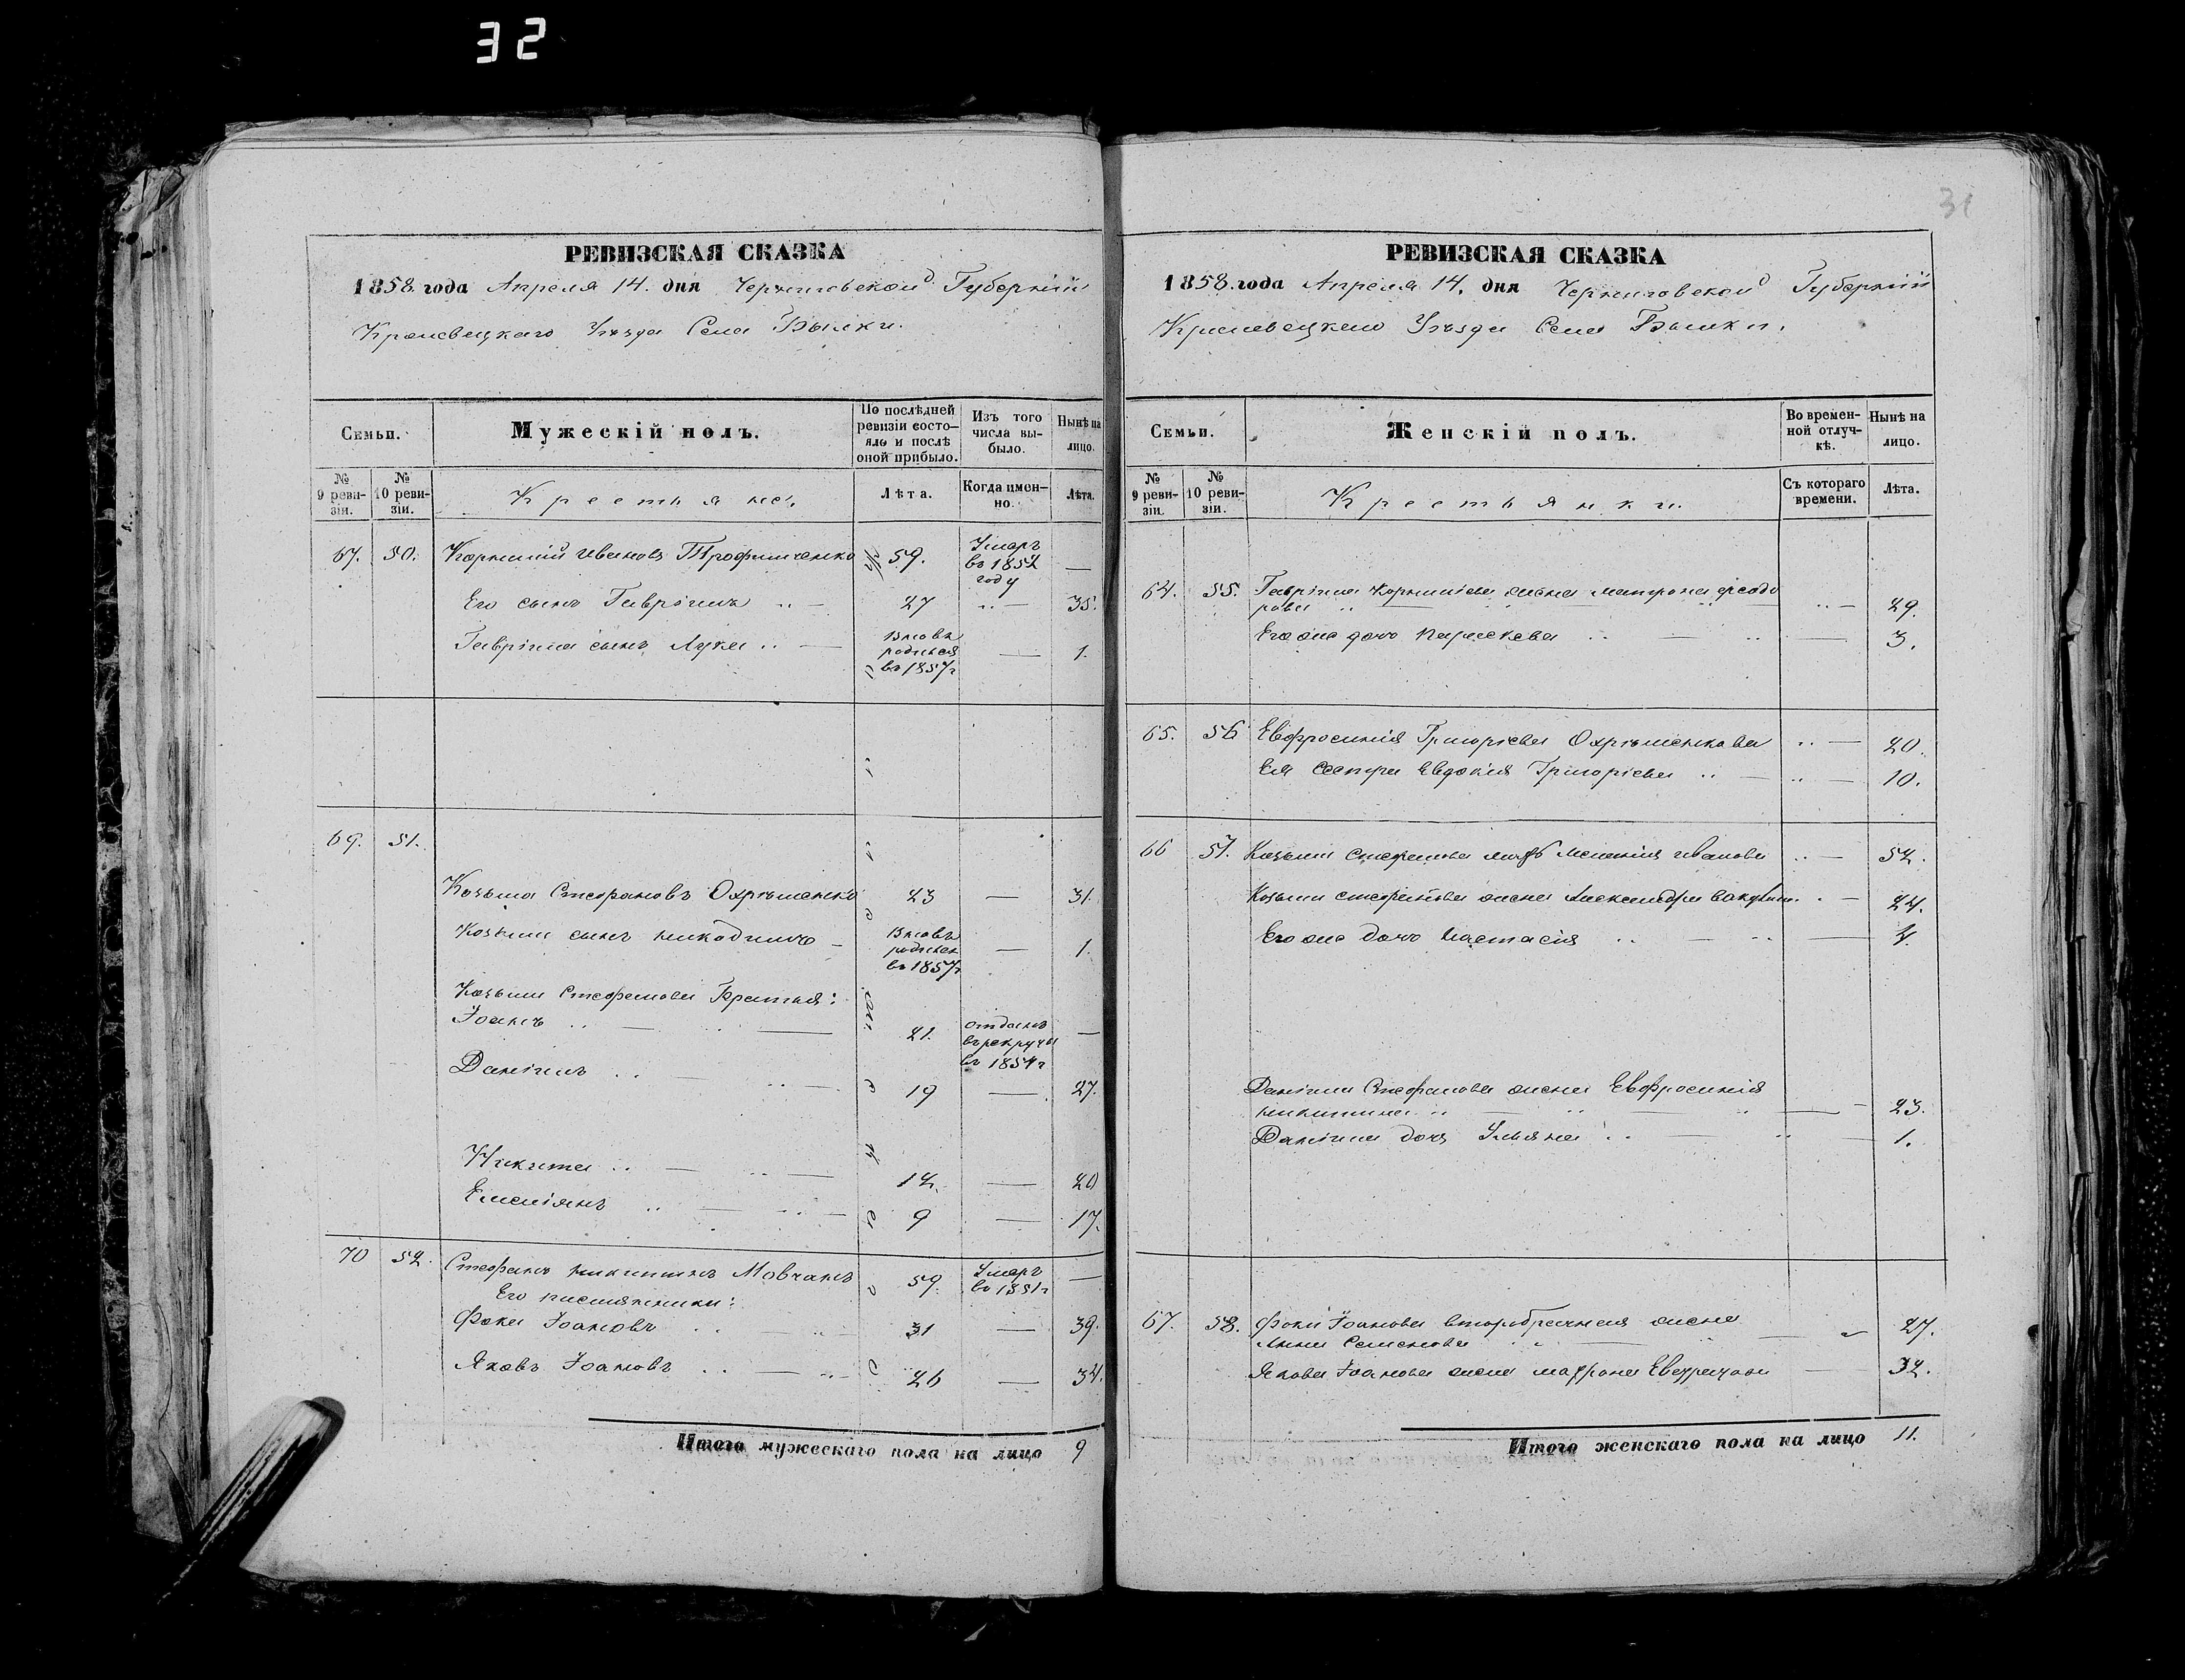 32
31
РЕВИЗСКАЯ СКАЗКА
1858. года Апреля 14. дня Черниговской Губерніи
Кролевецкаго Уѣзда Села
Семьи.
Мужескій полъ.
По послѣдней ревизіи состо-
яло и послѣ оной прибыло.
Изъ того числа вы-
было.
Нынѣ на лицо.
№ 9 реви-
зіи.
№ 10 реви-
зіи.
Крестьяне.
Лѣта.
Когда имен-
но.
Лѣта.
67. 50. Корнилій Ивановъ Трофименко 59. Умеръ в 1852 году —
Его сынъ Гавріилъ 27 35.
Гавріила сынъ Лука Вновь родился в 1857 г — 1.
69. 51.
Козьма Стефановъ Охрѣменко 23 — 31.
Козьмы сынъ Никодимъ Вновь родился в 1857 г — 1.
Козьмы Стефанова Братья:
Іоаннъ 21. отданъ в рекруты в 1854 г —
Даніилъ 19 — 27.
Никита 12. — 20
Емеліянъ 9 — 17.
70 52. Стефанъ Никитинъ Мовчанъ 59. Умеръ в 1851 г —
Его племянники:
Фока Іоановъ 31 — 39.
Яковъ Іоановъ 26 — 34.
Итого мужескаго пола на лицо 9
РЕВИЗСКАЯ СКАЗКА
1858. года Апреля 14. дня Черниговской Губерніи
Кролевецкаго Уѣзда Села
Семьи.
Женскій полъ.
Во времен-
ной отлуч-
кѣ.
Нынѣ на лицо.
№ 9 реви-
зіи.
№ 10 реви-
зіи.
Крестьянки.
Съ котораго времени.
Лѣта.
64. 55. Гавріила Корниліева жена Матрона Феодо
рова 29.
Его же дочь Параскева 3.
65. 56 Евфросинія Григоріева Охрѣменкова 20.
Ея сестра Евдокія Григоріева 10.
66 57. Козьмы Стефанова мать Меланія Иванова 52.
Козьмы Стефанова жена Александра 24.
Его же дочь Настасія
Даніила Стефанова жена Евфросинія
Никитина 23.
Даніила дочь Ульяна 1.
67. 58. Фоки Іоанова второбрачная жена
Анна Семенова 27.
Якова Іоанова жена 32.
Итого женскаго пола на лицо 11.